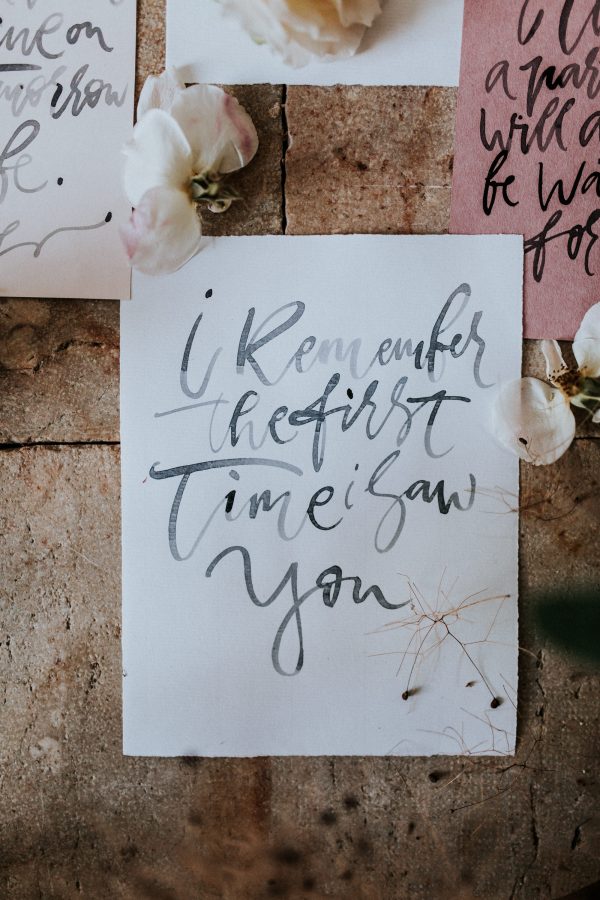 ine on
omorrow
fe.
a par
Will a
be Wa
for
i Remember
the first
Time i Saw
You